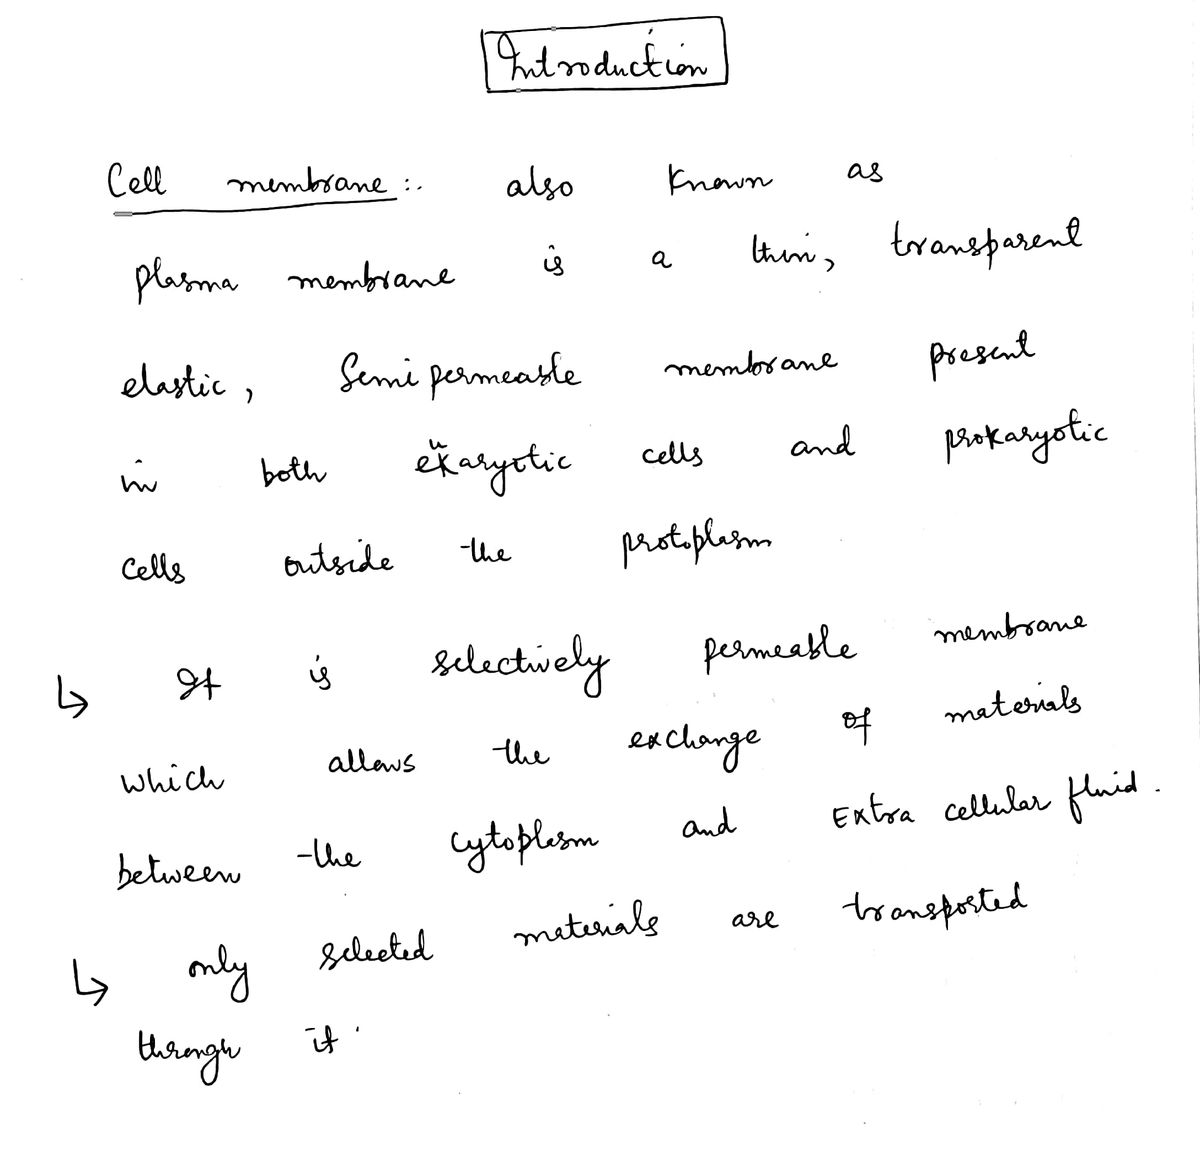 Introduction
Cell membrane :- also known as
plasma membrane is a thin, transparent
elastic, Semipermeable membrane present
in both eukaryotic cells and prokaryotic
cells outside the protoplasm
↳ It is selectively permeable membrane
which allows the exchange of materials
between the cytoplasm and Extra cellular fluid.
↳ only selected materials are transported
through it.